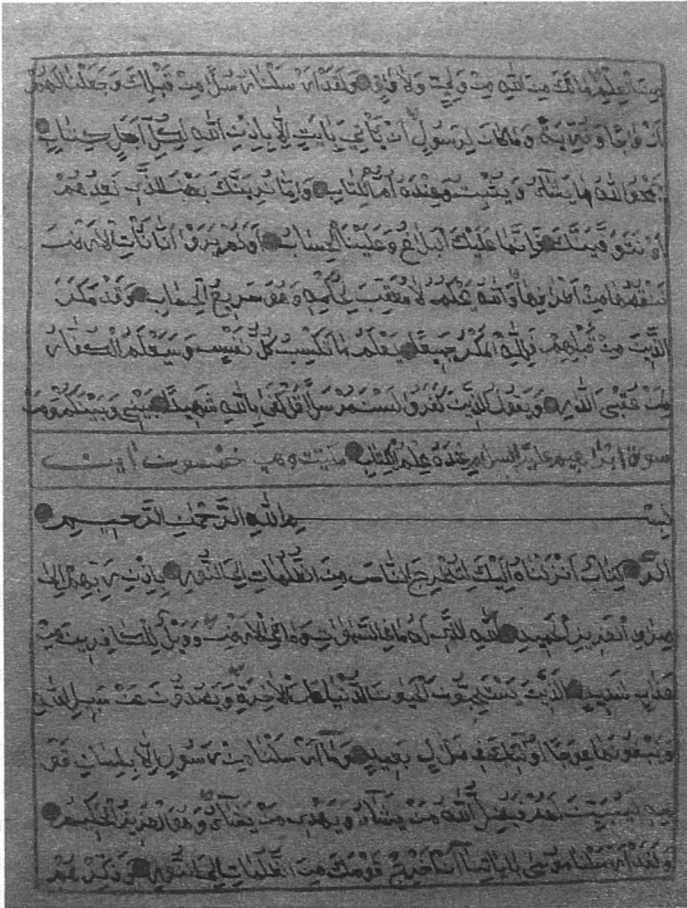 مِنَ الْعِلْمِ مَا لَكَ مِنَ اللهِ مِنْ وَلِيٍّ وَلَا وَاقٍ وَلَقَدْ اَرْسَلْنَا رُسُلًا مِنْ قَبْلِكَ وَجَعَلْنَا لَهُمْ
اَزْوَاجًا وَذُرِّيَّةً وَمَا كَانَ لِرَسُولٍ اَنْ يَأْتِيَ بِاٰيَةٍ اِلَّا بِاِذْنِ اللهِ لِكُلِّ اَجَلٍ كِتَابٌ
يَمْحُو اللهُ مَا يَشَآءُ وَيُثْبِتُ وَعِنْدَهُ اُمُّ الْكِتَابِ وَاِمَّا نُرِيَنَّكَ بَعْضَ الَّذِي نَعِدُهُمْ
اَوْ نَتَوَفَّيَنَّكَ فَاِنَّمَا عَلَيْكَ الْبَلَاغُ وَعَلَيْنَا الْحِسَابُ اَوَلَمْ يَرَوْا اَنَّا نَأْتِي الْاَرْضَ
نَنْقُصُهَا مِنْ اَطْرَافِهَا وَاللهُ يَحْكُمُ لَا مُعَقِّبَ لِحُكْمِهِ وَهُوَ سَرِيعُ الْحِسَابِ وَقَدْ مَكَرَ
الَّذِينَ مِنْ قَبْلِهِمْ فَلِلّٰهِ الْمَكْرُ جَمِيعًا يَعْلَمُ مَا تَكْسِبُ كُلُّ نَفْسٍ وَسَيَعْلَمُ الْكُفَّارُ
لِمَنْ عُقْبَى الدَّارِ وَيَقُولُ الَّذِينَ كَفَرُوا لَسْتَ مُرْسَلًا قُلْ كَفَى بِاللهِ شَهِيدًا بَيْنِي وَبَيْنَكُمْ وَمَنْ
سورة ابراهيم عليه السلام عِنْدَهُ عِلْمُ الْكِتَابِ مكيت وهي خمسون آيت
بِسْمِ اللهِ الرَّحْمٰنِ الرَّحِيمِ
الٓرٰ كِتَابٌ اَنْزَلْنَاهُ اِلَيْكَ لِتُخْرِجَ النَّاسَ مِنَ الظُّلُمَاتِ اِلَى النُّورِ بِاِذْنِ رَبِّهِمْ اِلَى
صِرَاطِ الْعَزِيزِ الْحَمِيدِ اللهِ الَّذِي لَهُ مَا فِي السَّمٰوَاتِ وَمَا فِي الْاَرْضِ وَوَيْلٌ لِلْكَافِرِينَ مِنْ
عَذَابٍ شَدِيدٍ الَّذِينَ يَسْتَحِبُّونَ الْحَيٰوةَ الدُّنْيَا عَلَى الْاٰخِرَةِ وَيَصُدُّونَ عَنْ سَبِيلِ اللهِ
وَيَبْغُونَهَا عِوَجًا اُولٰٓئِكَ فِي ضَلَالٍ بَعِيدٍ وَمَآ اَرْسَلْنَا مِنْ رَسُولٍ اِلَّا بِلِسَانِ قَوْ
مِهِ لِيُبَيِّنَ لَهُمْ فَيُضِلُّ اللهُ مَنْ يَشَآءُ وَيَهْدِي مَنْ يَشَآءُ وَهُوَ الْعَزِيزُ الْحَكِيمُ
وَلَقَدْ اَرْسَلْنَا مُوسَى بِاٰيَاتِنَآ اَنْ اَخْرِجْ قَوْمَكَ مِنَ الظُّلُمَاتِ اِلَى النُّورِ وَذَكِّرْهُمْ